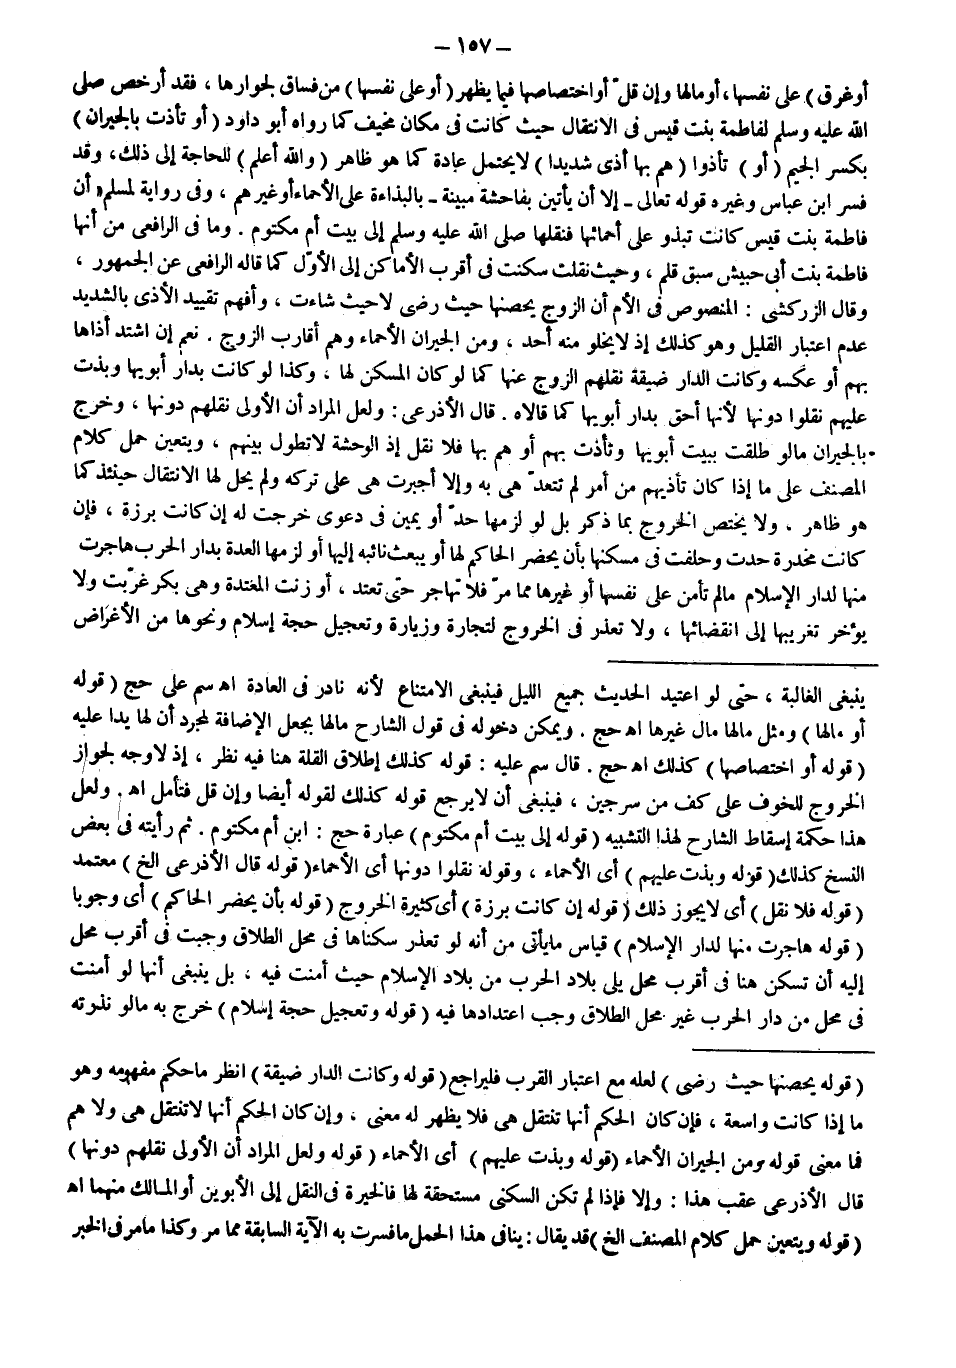 – ١٥٧ –
أو غرق ) على نفسها، أو مالها وإن قلّ أو اختصاصها فيما يظهر ( أو على نفسها ) من فساق لجوارها ، فقد أرخص صلى
الله عليه وسلم لفاطمة بنت قيس فى الانتقال حيث كانت فى مكان مخيف كما رواه أبو داود ( أو تأذت بالجيران )
بكسر الجيم ( أو ) تأذوا ( هم بها أذى شديدا ) لا يحتمل عادة كما هو ظاهر ( والله أعلم ) للحاجة إلى ذلك، وقد
فسر ابن عباس وغيره قوله تعالى ـ إلا أن يأتين بفاحشة مبينة ـ بالبذاءة على الأحماء أو غيرهم ، وفى رواية لمسلم أن
فاطمة بنت قيس كانت تبذو على أحمائها فنقلها صلى الله عليه وسلم إلى بيت أم مكتوم . وما فى الرافعى من أنها
فاطمة بنت أبى حبيش سبق قلم ، وحيث نقلت سكنت فى أقرب الأماكن إلى الأوّل كما قاله الرافعى عن الجمهور ،
وقال الزركشى : المنصوص فى الأم أن الزوج يحصنها حيث رضى لا حيث شاءت ، وأفهم تقييد الأذى بالشديد
عدم اعتبار القليل وهو كذلك إذ لا يخلو منه أحد ، ومن الجيران الأحماء وهم أقارب الزوج . نعم إن اشتد أذاها
بهم أو عكسه وكانت الدار ضيقة نقلهم الزوج عنها كما لو كان المسكن لها ، وكذا لو كانت بدار أبويها وبذت
عليهم نقلوا دونها لأنها أحق بدار أبويها كما قالاه . قال الأذرعى : ولعل المراد أن الأولى نقلهم دونها ، وخرج
بالجيران مالو طلقت ببيت أبويها وتأذت بهم أو هم بها فلا نقل إذ الوحشة لا تطول بينهم ، ويتعين حمل كلام
المصنف على ما إذا كان تأذيهم من أمر لم تتعدّ هى به وإلا أجبرت هى على تركه ولم يحل لها الانتقال حينئذ كما
هو ظاهر . ولا يختص الخروج بما ذكر بل لو لزمها حدّ أو يمين فى دعوى خرجت له إن كانت برزة ، فإن
كانت مخدرة حدت وحلفت فى مسكنها بأن يحضر الحاكم لها أو يبعث نائبه إليها أو لزمها العدة بدار الحرب هاجرت
منها لدار الإسلام مالم تأمن على نفسها أو غيرها مما مرّ فلا تهاجر حتى تعتد ، أو زنت المعتدة وهى بكر غرّبت ولا
يؤخر تغريبها إلى انقضائها ، ولا تعذر فى الخروج لتجارة وزيارة وتعجيل حجة إسلام ونحوها من الأغراض
ينبغى الغالبة ، حتى لو اعتيد الحديث جميع الليل فينبغى الامتناع لأنه نادر فى العادة اه سم على حج ( قوله
أو مالها ) ومثل مالها مال غيرها اه حج . ويمكن دخوله فى قول الشارح مالها بجعل الإضافة لمجرد أن لها يدا عليه
( قوله أو اختصاصها ) كذلك اه حج . قال سم عليه : قوله كذلك إطلاق القلة هنا فيه نظر ، إذ لا وجه لجواز
الخروج للخوف على كف من سرجين ، فينبغى أن لا يرجع قوله كذلك لقوله أيضا وإن قل فتأمل اه . ولعل
هذا حكمة إسقاط الشارح لهذا التشبيه ( قوله إلى بيت أم مكتوم ) عبارة حج : ابن أم مكتوم . ثم رأيته فى بعض
النسخ كذلك ( قوله وبذت عليهم ) أى الأحماء ، وقوله نقلوا دونها أى الأحماء ( قوله قال الأذرعى الخ ) معتمد
( قوله فلا نقل ) أى لا يجوز ذلك ( قوله إن كانت برزة ) أى كثيرة الخروج ( قوله بأن يحضر الحاكم ) أى وجوبا
( قوله هاجرت منها لدار الإسلام ) قياس ما يأتى من أنه لو تعذر سكناها فى محل الطلاق وجبت فى أقرب محل
إليه أن تسكن هنا فى أقرب محل يلى بلاد الحرب من بلاد الإسلام حيث أمنت فيه ، بل ينبغى أنها لو أمنت
فى محل من دار الحرب غير محل الطلاق وجب اعتدادها فيه ( قوله وتعجيل حجة إسلام ) خرج به مالو نذرته
( قوله يحصنها حيث رضى ) لعله مع اعتبار القرب فليراجع ( قوله وكانت الدار ضيقة ) انظر ما حكم مفهومه وهو
ما إذا كانت واسعة ، فإن كان الحكم أنها تنتقل هى فلا يظهر له معنى ، وإن كان الحكم أنها لا تنتقل هى ولا هم
فما معنى قوله ومن الجيران الأحماء ( قوله وبذت عليهم ) أى الأحماء ( قوله ولعل المراد أن الأولى نقلهم دونها )
قال الأذرعى عقب هذا : وإلا فإذا لم تكن السكنى مستحقة لها فالخيرة فى النقل إلى الأبوين أو المالك منهما اه
( قوله ويتعين حمل كلام المصنف الخ ) قد يقال : ينافى هذا الحمل ما فسرت به الآية السابقة مما مر وكذا مامر فى الخبر